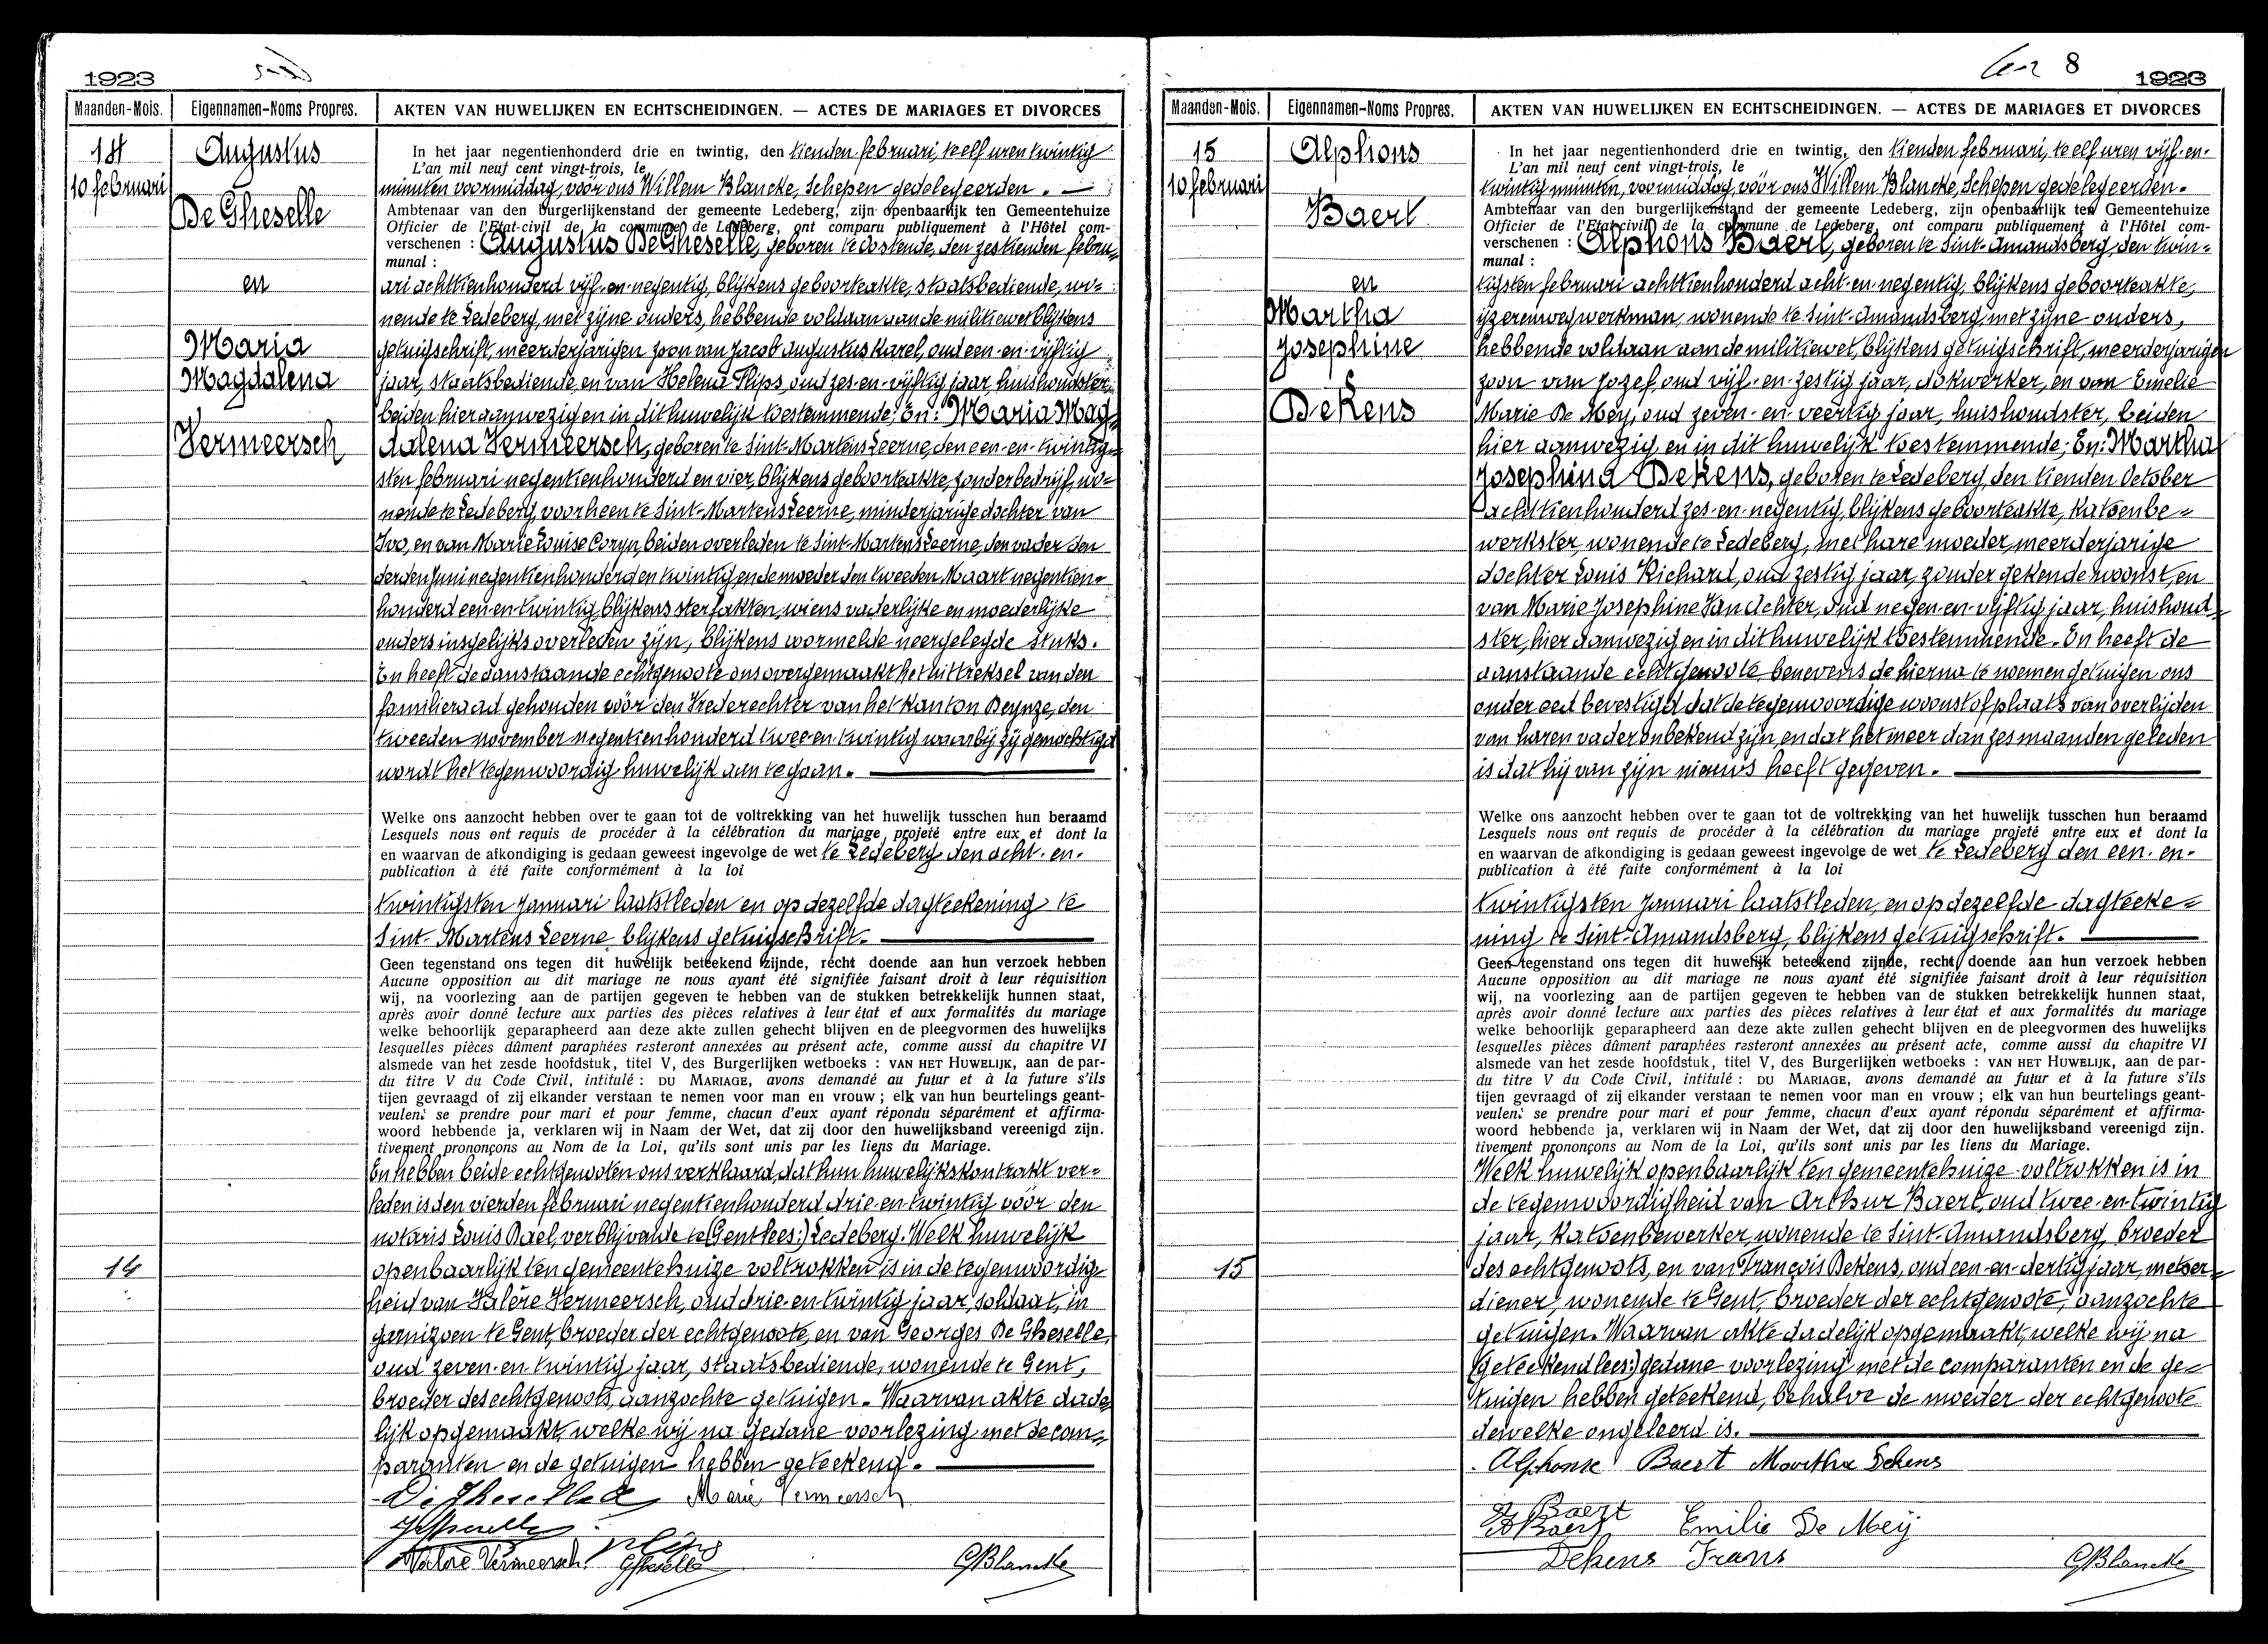 1923
Maanden-Mois.
Eigennamen-Noms Propres.
AKTEN VAN HUWELIJKEN EN ECHTSCHEIDINGEN. — ACTES DE MARIAGES ET DIVORCES
14
10 februari
Augustus
De Gheselle
en
Maria
Magdalena
Vermeersch
In het jaar negentienhonderd drie en twintig, den tienden februari, te elf uren twintig
L'an mil neuf cent vingt-trois, le
minuten voormiddag, vóór ons Willem Blancke, Schepen gedelegeerden. —
Ambtenaar van den burgerlijkenstand der gemeente Ledeberg, zijn openbaarlijk ten Gemeentehuize
Officier de l'Etat-civil de la commune de Ledeberg, ont comparu publiquement à l'Hôtel com-
verschenen : Augustus De Gheselle, geboren te Oostende, den zestienden febru=
munal :
ari achttienhonderd vijf-en-negentig, blijkens geboorteakte, staatsbediende, wo=
nende te Ledeberg, met zijne ouders, hebbende voldaan aan de militiewet blijkens
getuigschrift, meerderjarigen zoon van Jacob Augustus Karel, oud een-en-vijftig
jaar, staatsbediende, en van Helena Flips, oud zes-en-vijftig jaar, huishoudster,
beiden hier aanwezig en in dit huwelijk toestemmende; En: Maria Mag=
dalena Vermeersch, geboren te Sint-Martens Leerne, den een-en-twintig=
sten februari negentienhonderd en vier, blijkens geboorteakte, zonder bedrijf, wo=
nende te Ledeberg, voorheen te Sint-Martens Leerne, minderjarige dochter van
Ivo, en van Marie Louise Coryn, beiden overleden te Sint-Martens Leerne, den vader den
derden Juni negentienhonderd en twintig en de moeder den tweeden Maart negentien=
honderd een en twintig, blijkens sterfakten, wiens vaderlijke en moederlijke
ouders insgelijks overleden zijn, blijkens voormelde neergelegde stuks.
En heeft de aanstaande echtgenoote ons overgemaakt het uittreksel van den
familieraad gehouden vóór den Vrederechter van het kanton Deynze, den
tweeden november negentienhonderd twee-en-twintig waarbij zij gemachtigd
wordt het tegenwoordig huwelijk aan te gaan. —
Welke ons aanzocht hebben over te gaan tot de voltrekking van het huwelijk tusschen hun beraamd
Lesquels nous ont requis de procéder à la célébration du mariage projeté entre eux et dont la
en waarvan de afkondiging is gedaan geweest ingevolge de wet te Ledeberg den acht-en-
publication à été faite conformément à la loi
twintigsten Januari laatstleden en op dezelfde dagteekening te
Sint-Martens Leerne, blijkens getuigschrift. —
Geen tegenstand ons tegen dit huwelijk beteekend zijnde, recht doende aan hun verzoek hebben
Aucune opposition au dit mariage ne nous ayant été signifiée faisant droit à leur réquisition
wij, na voorlezing aan de partijen gegeven te hebben van de stukken betrekkelijk hunnen staat,
après avoir donné lecture aux parties des pièces relatives à leur état et aux formalités du mariage
welke behoorlijk geparapheerd aan deze akte zullen gehecht blijven en de pleegvormen des huwelijks
lesquelles pièces dûment paraphées resteront annexées au présent acte, comme aussi du chapitre VI
alsmede van het zesde hoofdstuk, titel V, des Burgerlijken wetboeks : VAN HET HUWELIJK, aan de par-
du titre V du Code Civil, intitulé : DU MARIAGE, avons demandé au futur et à la future s'ils
tijen gevraagd of zij elkander verstaan te nemen voor man en vrouw ; elk van hun beurtelings geant-
veulent se prendre pour mari et pour femme, chacun d'eux ayant répondu séparément et affirma-
woord hebbende ja, verklaren wij in Naam der Wet, dat zij door den huwelijksband vereenigd zijn.
tivement prononçons au Nom de la Loi, qu'ils sont unis par les liens du Mariage.
En hebben beide echtgenooten ons verklaard, dat hun huwelijkskontrakt ver=
leden is den vierden februari negentienhonderd drie-en-twintig vóór den
notaris Louis Dael, verblijvende te (Gent lees:) Ledeberg. Welk huwelijk
openbaarlijk ten gemeentehuize voltrokken is in de tegenwoordig=
14
heid van Valère Vermeersch, oud drie-en-twintig jaar, soldaat, in
garnizoen te Gent, broeder der echtgenoote, en van Georges De Gheselle,
oud zeven-en-twintig jaar, staatsbediende, wonende te Gent,
broeder des echtgenoots, aanzochte getuigen. Waarvan akte dade=
lijk opgemaakt, welke wij na gedane voorlezing met de com=
paranten en de getuigen hebben geteekend. —
Marie Vermeersch
Valere Vermeersch
GBlancke
8
1923
Maanden-Mois.
Eigennamen-Noms Propres.
AKTEN VAN HUWELIJKEN EN ECHTSCHEIDINGEN. — ACTES DE MARIAGES ET DIVORCES
15
10 februari
Alphons
Baert
en
Martha
Josephine
Dekens
In het jaar negentienhonderd drie en twintig, den tienden februari, te elf uren vijf-en-
L'an mil neuf cent vingt-trois, le
twintig minuten, voormiddag, vóór ons Willem Blancke, Schepen gedelegeerden.
Ambtenaar van den burgerlijkenstand der gemeente Ledeberg, zijn openbaarlijk ten Gemeentehuize
Officier de l'Etat civil de la commune de Ledeberg, ont comparu publiquement à l'Hôtel com-
verschenen : Alphons Baert, geboren te Sint-Amandsberg, den twin=
munal :
tigsten februari achttienhonderd acht-en-negentig, blijkens geboorteakte,
ijzerenwegwerkman, wonende te Sint-Amandsberg, met zijne ouders,
hebbende voldaan aan de militiewet, blijkens getuigschrift, meerderjarigen
zoon van Jozef, oud vijf-en-zestig jaar, dokwerker, en van Emelie
Marie De Meij, oud zeven-en-veertig jaar, huishoudster, beiden
hier aanwezig en in dit huwelijk toestemmende; En: Martha
Josephina Dekens, geboren te Ledeberg, den tienden October
achttienhonderd zes-en-negentig, blijkens geboorteakte, katoenbe=
werkster, wonende te Ledeberg, met hare moeder, meerderjarige
dochter Louis Richard, oud zestig jaar, zonder gekende woonst, en
van Marie Josephine Van Achter, oud negen-en-vijftig jaar, huishoud=
ster, hier aanwezig en in dit huwelijk toestemmende. En heeft de
aanstaande echtgenoote, benevens de hierna te noemen getuigen ons
onder eed bevestigd dat de tegenwoordige woonst of plaats van overlijden
van haren vader onbekend zijn, en dat het meer dan zes maanden geleden
is dat hij van zijn nieuws heeft gegeven. —
Welke ons aanzocht hebben over te gaan tot de voltrekking van het huwelijk tusschen hun beraamd
Lesquels nous ont requis de procéder à la célébration du mariage projeté entre eux et dont la
en waarvan de afkondiging is gedaan geweest ingevolge de wet te Ledeberg den een-en-
publication à été faite conformément à la loi
twintigsten Januari laatstleden, en op dezelfde dagteeke=
ning te Sint-Amandsberg, blijkens getuigschrift. —
Geen tegenstand ons tegen dit huwelijk beteekend zijnde, recht doende aan hun verzoek hebben
Aucune opposition au dit mariage ne nous ayant été signifiée faisant droit à leur réquisition
wij, na voorlezing aan de partijen gegeven te hebben van de stukken betrekkelijk hunnen staat,
après avoir donné lecture aux parties des pièces relatives à leur état et aux formalités du mariage
welke behoorlijk geparapheerd aan deze akte zullen gehecht blijven en de pleegvormen des huwelijks
lesquelles pièces dûment paraphées resteront annexées au présent acte, comme aussi du chapitre VI
alsmede van het zesde hoofdstuk, titel V, des Burgerlijken wetboeks : VAN HET HUWELIJK, aan de par-
du titre V du Code Civil, intitulé : DU MARIAGE, avons demandé au futur et à la future s'ils
tijen gevraagd of zij elkander verstaan te nemen voor man en vrouw ; elk van hun beurtelings geant-
veulent se prendre pour mari et pour femme, chacun d'eux ayant répondu séparément et affirma-
woord hebbende ja, verklaren wij in Naam der Wet, dat zij door den huwelijksband vereenigd zijn.
tivement prononçons au Nom de la Loi, qu'ils sont unis par les liens du Mariage.
Welk huwelijk openbaarlijk ten gemeentehuize voltrokken is in
de tegenwoordigheid van Arthur Baert, oud twee-en-twintig
jaar, katoenbewerker, wonende te Sint-Amandsberg, broeder
des echtgenoots, en van François Dekens, oud een-en-dertig jaar, metser=
15
diener, wonende te Gent, broeder der echtgenoote, aanzochte
getuigen. Waarvan akte dadelijk opgemaakt, welke wij na
(geteekend lees:) gedane voorlezing met de comparanten en de ge=
tuigen hebben geteekend, behalve de moeder der echtgenoote
dewelke ongeleerd is. —
Alphonse Baert Martha Dekens
Baert
Baert Emilie De Meij
Dekens Frans
GBlancke